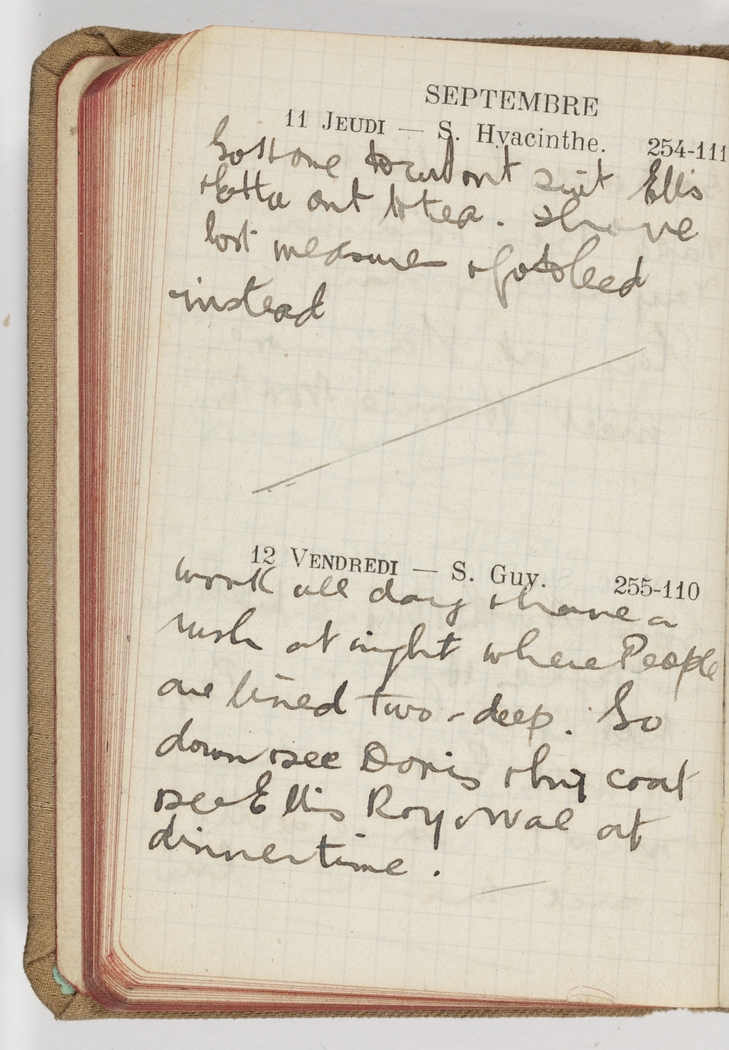 SEPTEMBRE
11 JEUDI — S. Hyacinthe. 254-111
to cut out suit Ellis
out to tea. & have
lost measure
instead
12 VENDREDI — S. Guy. 255-110
work all day & have a
rush at night where People
are lined two-deep. Go
down & see Doris & buy coat
& see Ellis Roy & Wal at
dinnertime.